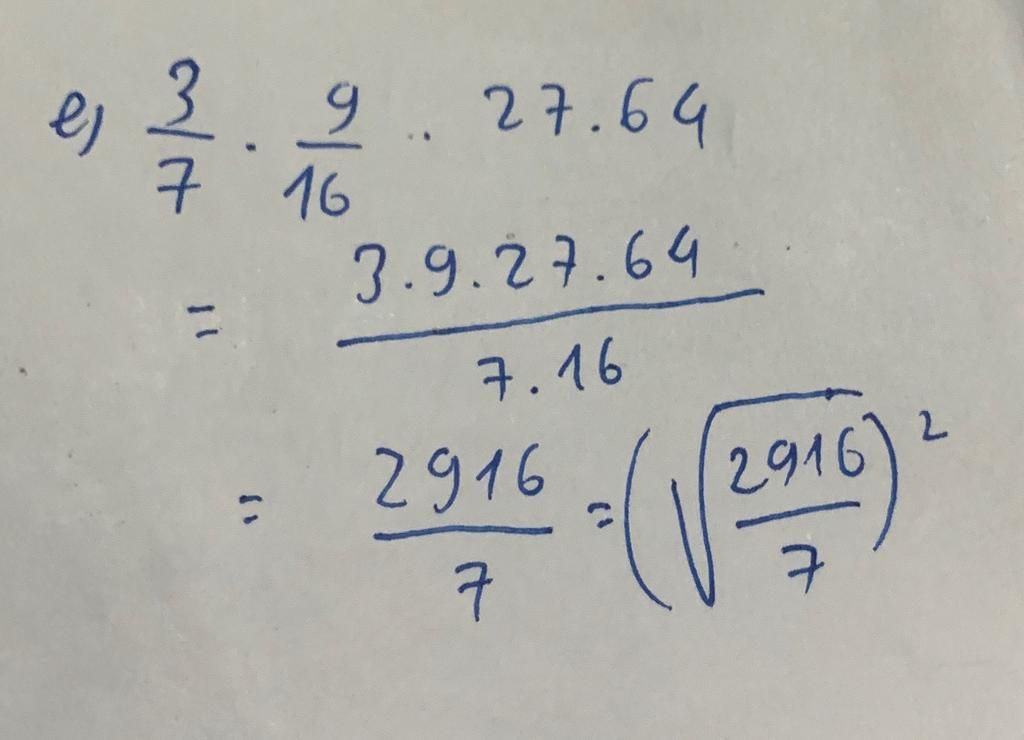 e) 3/7 . 9/16 .. 27.64
= 3.9.27.64 / 7.16
= 2916/7 = (√(2916/7))²